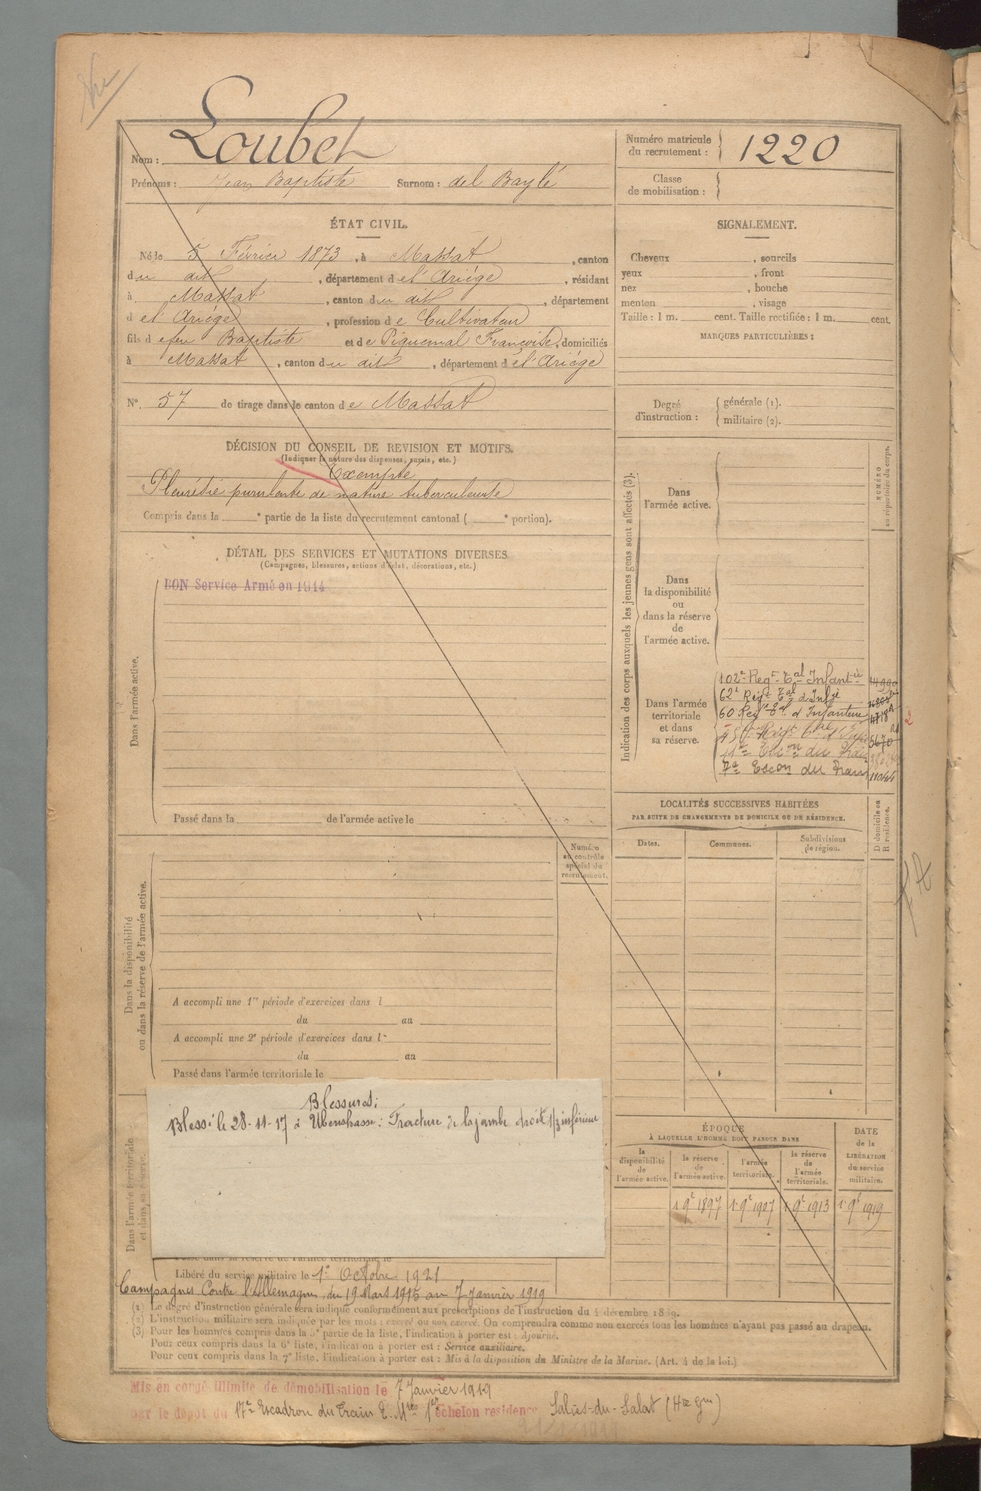 Nom : Loubet
Prénoms : Jean Baptiste Surnom : del Baylé
Numéro matricule du recrutement : 1220
Classe de mobilisation :
ÉTAT CIVIL.
Né le 5 Février 1873, à Massat, canton
du dit, département de l'Ariége, résidant
à Massat, canton du dit, département
de l'Ariége, profession de Cultivateur
fils de feu Baptiste et de Piquemal Françoise, domiciliés
à Massat, canton du dit, département de l'Ariége
N° 57 de tirage dans le canton de Massat
SIGNALEMENT.
Cheveux , sourcils
yeux , front
nez , bouche
menton , visage
Taille : 1 m. cent. Taille rectifiée : 1 m. cent.
MARQUES PARTICULIÈRES :
Degré d'instruction : générale (1).
militaire (2).
DÉCISION DU CONSEIL DE REVISION ET MOTIFS.
(Indiquer la nature des dispenses, sursis, etc.)
Exempté
Pleurésie purulente de nature tuberculeuse
Compris dans la e partie de la liste du recrutement cantonal ( e portion).
DÉTAIL DES SERVICES ET MUTATIONS DIVERSES.
(Campagnes, blessures, actions d'éclat, décorations, etc.)
Dans l'armée active.
BON Service Armé en 1914
Passé dans la de l'armée active le
Indication des corps auxquels les jeunes gens sont affectés (3).
NUMÉRO au répertoire du corps.
Dans l'armée active.
Dans la disponibilité ou dans la réserve de l'armée active.
Dans l'armée territoriale et dans sa réserve.
102e Regt Tal Infantie
62e Regt Tal d'Infie
60 Regt Tal d'Infanterie
7e Escon du Train
LOCALITÉS SUCCESSIVES HABITÉES
PAR SUITE DE CHANGEMENTS DE DOMICILE OU DE RÉSIDENCE.
Dates. Communes. Subdivisions de région. D domicile ou R résidence.
Dans la disponibilité ou dans la réserve de l'armée active.
Numéro au contrôle spécial du recrutement.
A accompli une 1re période d'exercices dans l
du au
A accompli une 2e période d'exercices dans l
du au
Passé dans l'armée territoriale le
Dans l'armée territoriale et dans sa réserve.
Blessures :
Blessé le 28-11-17 à : Fracture de la jambe droite 1/3 inférieur
ÉPOQUE
À LAQUELLE L'HOMME DOIT PASSER DANS
la disponibilité de l'armée active.
la réserve de l'armée active.
l'armée territoriale.
la réserve de l'armée territoriale.
DATE de la LIBÉRATION du service militaire.
1 9e 1897 1 9e 1907 1 9e 1913 1 9e 1919
Libéré du service militaire le 1er Octobre 1921
Campagnes Contre l'Allemagne, du 19 Mars 1915 au 7 janvier 1919
(1) Le degré d'instruction générale sera indiqué conformément aux prescriptions de l'instruction du 4 décembre 1889.
(2) L'instruction militaire sera indiquée par les mots : exercé ou non exercé. On comprendra comme non exercés tous les hommes n'ayant pas passé au drapeau.
(3) Pour les hommes compris dans la 5e partie de la liste, l'indication à porter est : Ajourné.
Pour ceux compris dans la 6e liste, l'indication à porter est : Service auxiliaire.
Pour ceux compris dans la 7e liste, l'indication à porter est : Mis à la disposition du Ministre de la Marine. (Art. 4 de la loi.)
Mis en congé illimité de démobilisation le 7 Janvier 1919
par le dépôt du 17e Escadron du Train 1er échelon residence Salies-du-Salat (Hte Gne)